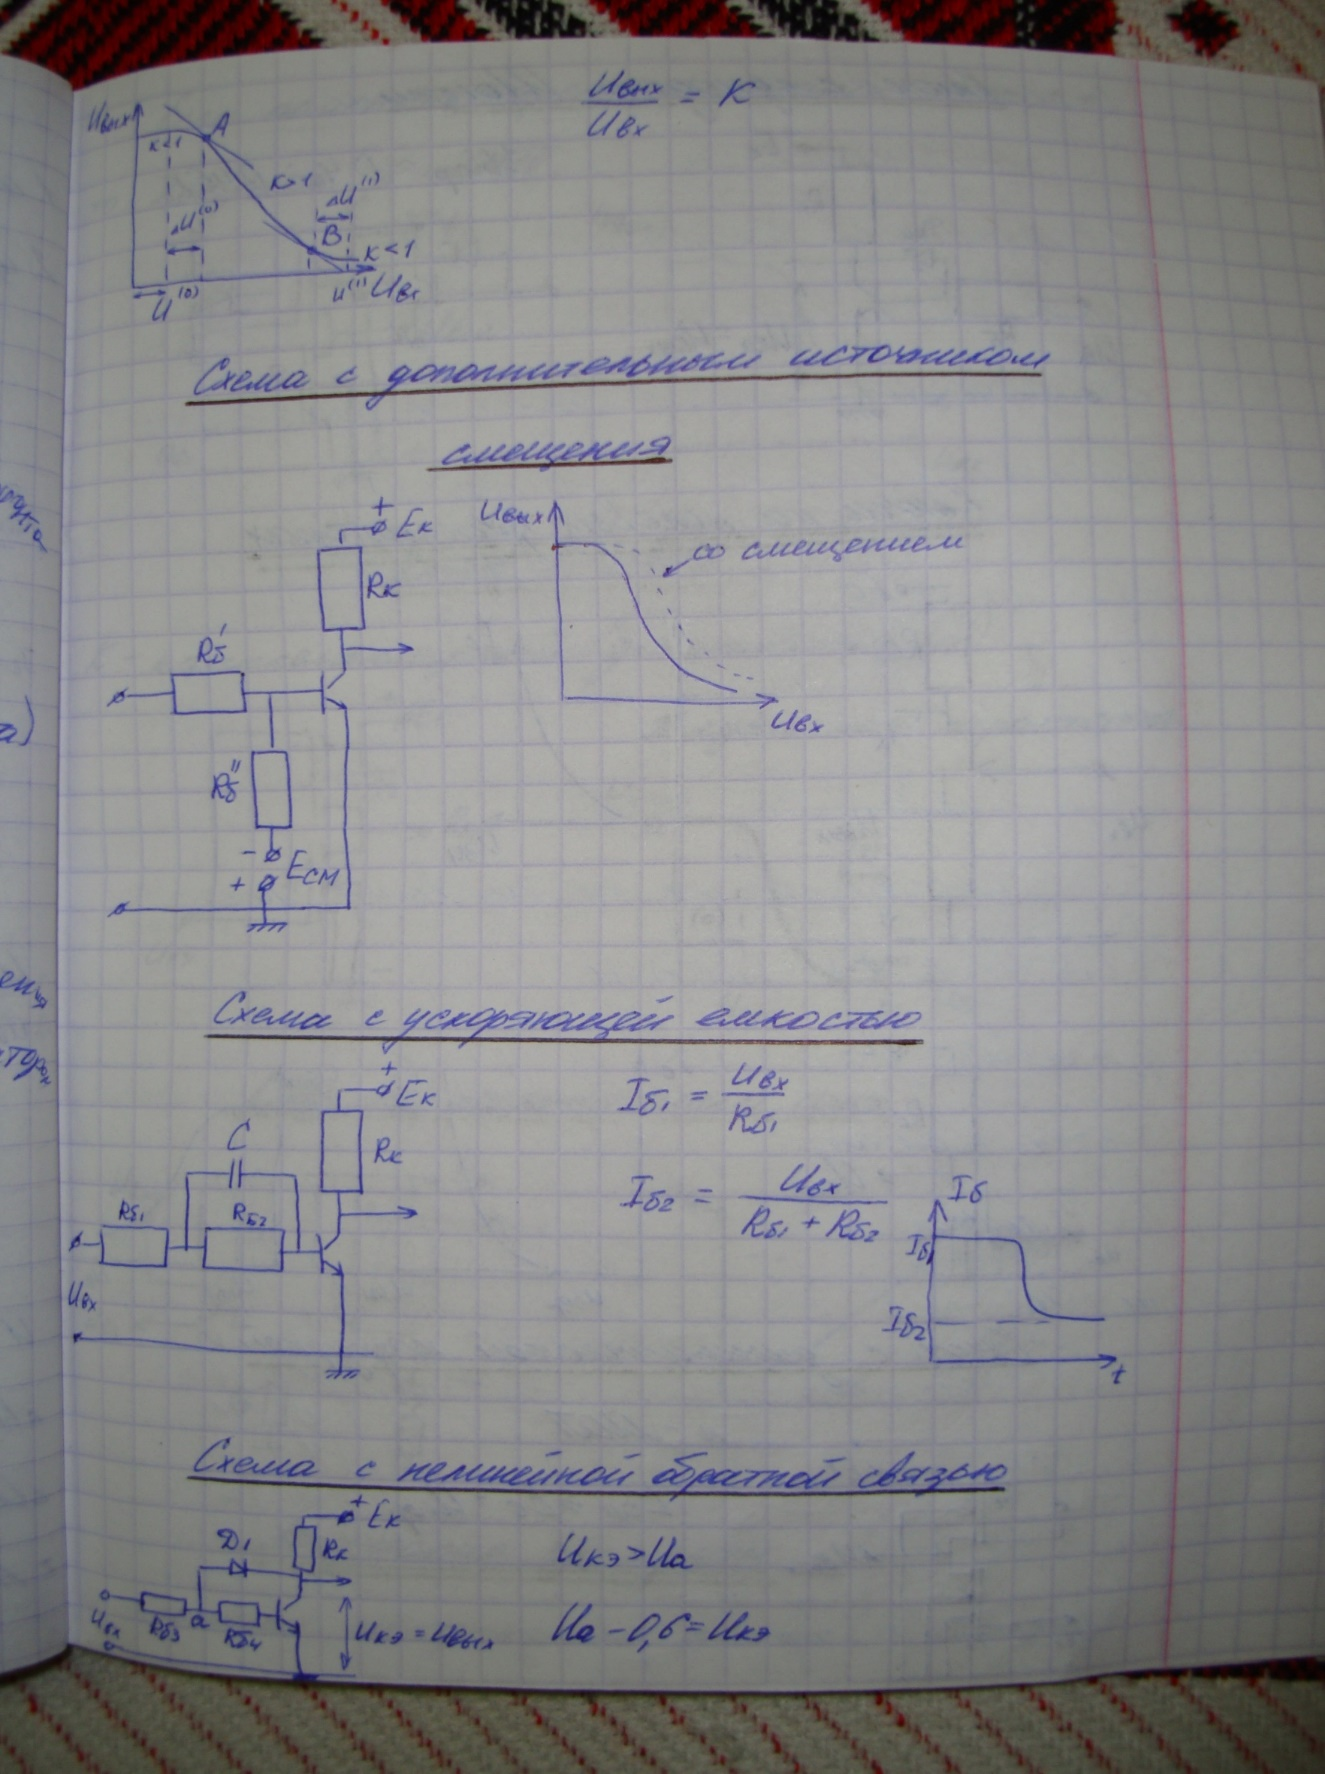 Uвых
A
K<1
K>1
ΔU⁽⁰⁾
ΔU⁽¹⁾
B
K<1
U⁽⁰⁾
U⁽¹⁾ Uвх
Uвых / Uвх = K
Схема с дополнительным источником
смещения
+ Eк
Rк
Rб'
Rб"
-
+ Eсм
Uвых
со смещением
Uвх
Схема с ускоряющей емкостью
+ Eк
Rк
C
Rб1
Rб2
Uвх
Iб1 = Uвх / Rб1
Iб2 = Uвх / (Rб1 + Rб2)
Iб
Iб1
Iб2
t
Схема с нелинейной обратной связью
+ Eк
Rк
D1
Uвх
Rб3
a
Rб4
Uкэ = Uвых
Uкэ > Ua
Ua - 0,6 = Uкэ